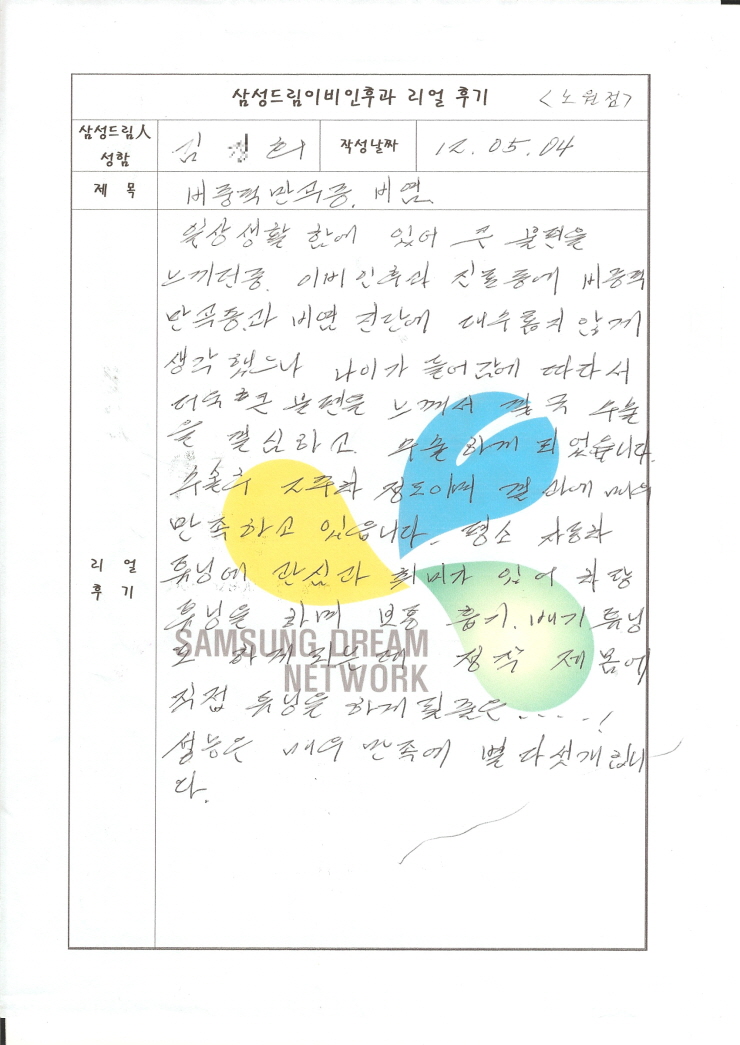 삼성드림이비인후과 리얼 후기 <노원점>
삼성드림人 성함 김 희 작성날짜 12. 05. 04
제 목 비중격만곡증, 비염
리 얼 후 기
일상생활 함에 있어 큰 불편을
느끼던중, 이비인후과 진료중에 비중격
만곡증과 비염 진단에 대수롭지 않게
생각 했으나 나이가 들어감에 따라서
더욱 큰 불편을 느껴서 결국 수술
을 결심하고 수술하게 되었습니다.
수술후 2주차 정도이며 결과에 매우
만족하고 있습니다. 평소 자동차
튜닝에 관심과 취미가 있어 차량
튜닝을 하며 보통 흡기, 배기 튜닝
도 하게되는데 정작 제 몸에
직접 튜닝을 하게 될 줄은.....!
성능은 매우 만족에 별 다섯개 입니
다.
SAMSUNG DREAM
NETWORK